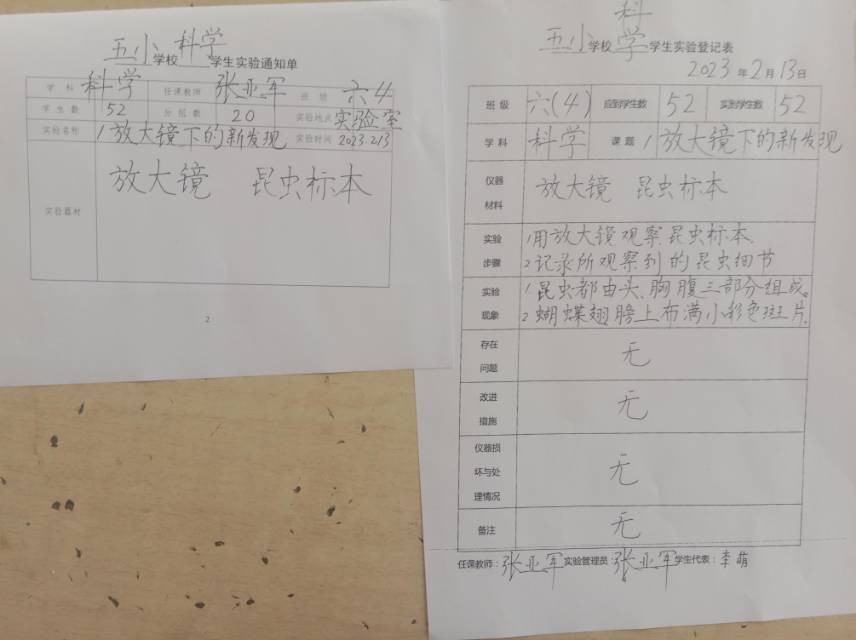 五小学校科学学生实验通知单
学科 科学 任课教师 张亚军 班级 六4
学生数 52 分组数 20 实验地点 实验室
实验名称 1放大镜下的新发现 实验时间 2023.2.13
实验器材 放大镜 昆虫标本
2
五小学校科学学生实验登记表
2023年2月13日
班级 六(4) 应到学生数 52 实到学生数 52
学科 科学 课题 1放大镜下的新发现
仪器材料 放大镜 昆虫标本
实验步骤 1用放大镜观察昆虫标本.
2记录所观察到的昆虫细节
实验现象 1昆虫都由头、胸腹三部分组成。
2蝴蝶翅膀上布满小彩色斑片.
存在问题 无
改进措施 无
仪器损坏与处理情况 无
备注 无
任课教师：张亚军 实验管理员：张亚军 学生代表：李萌